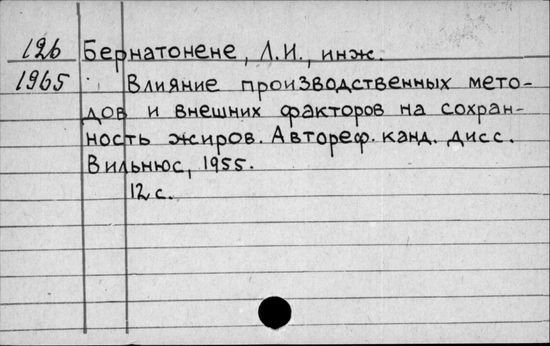 126 Бернатонене, Л.И., инж.
1965 Влияние производственных мето-
дов и внешних факторов на сохран-
ность жиров. Автореф. канд. дисс.
Вильнюс, 1955.
12 с.